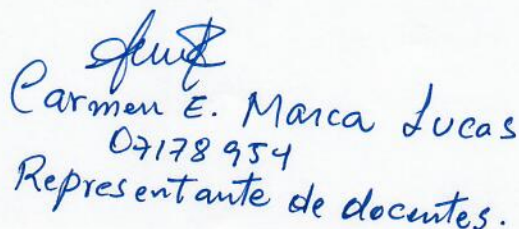 Carmen E. Marca Lucas
07178954
Representante de docentes.